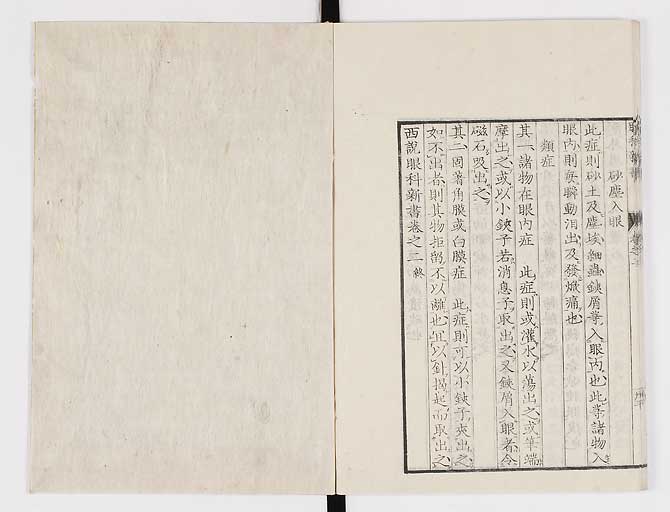 砂塵入眼
此症則砂土及塵埃細蟲鉄屑等入眼内也此等諸物入
眼内則每瞬動泪出及發熾痛也
類症
其一諸物在眼内症　此症則或灌水以蕩出之或筆端
摩出之或以小鋏子若消息子取出之又鉄屑入眼者令
磁石吸出之
其二固著角膜或白膜症　此症則可以小鋏子夾出之
如不出者則其物拒留不以離也宜以針揭起而取出之
西説眼科新書巻之二終